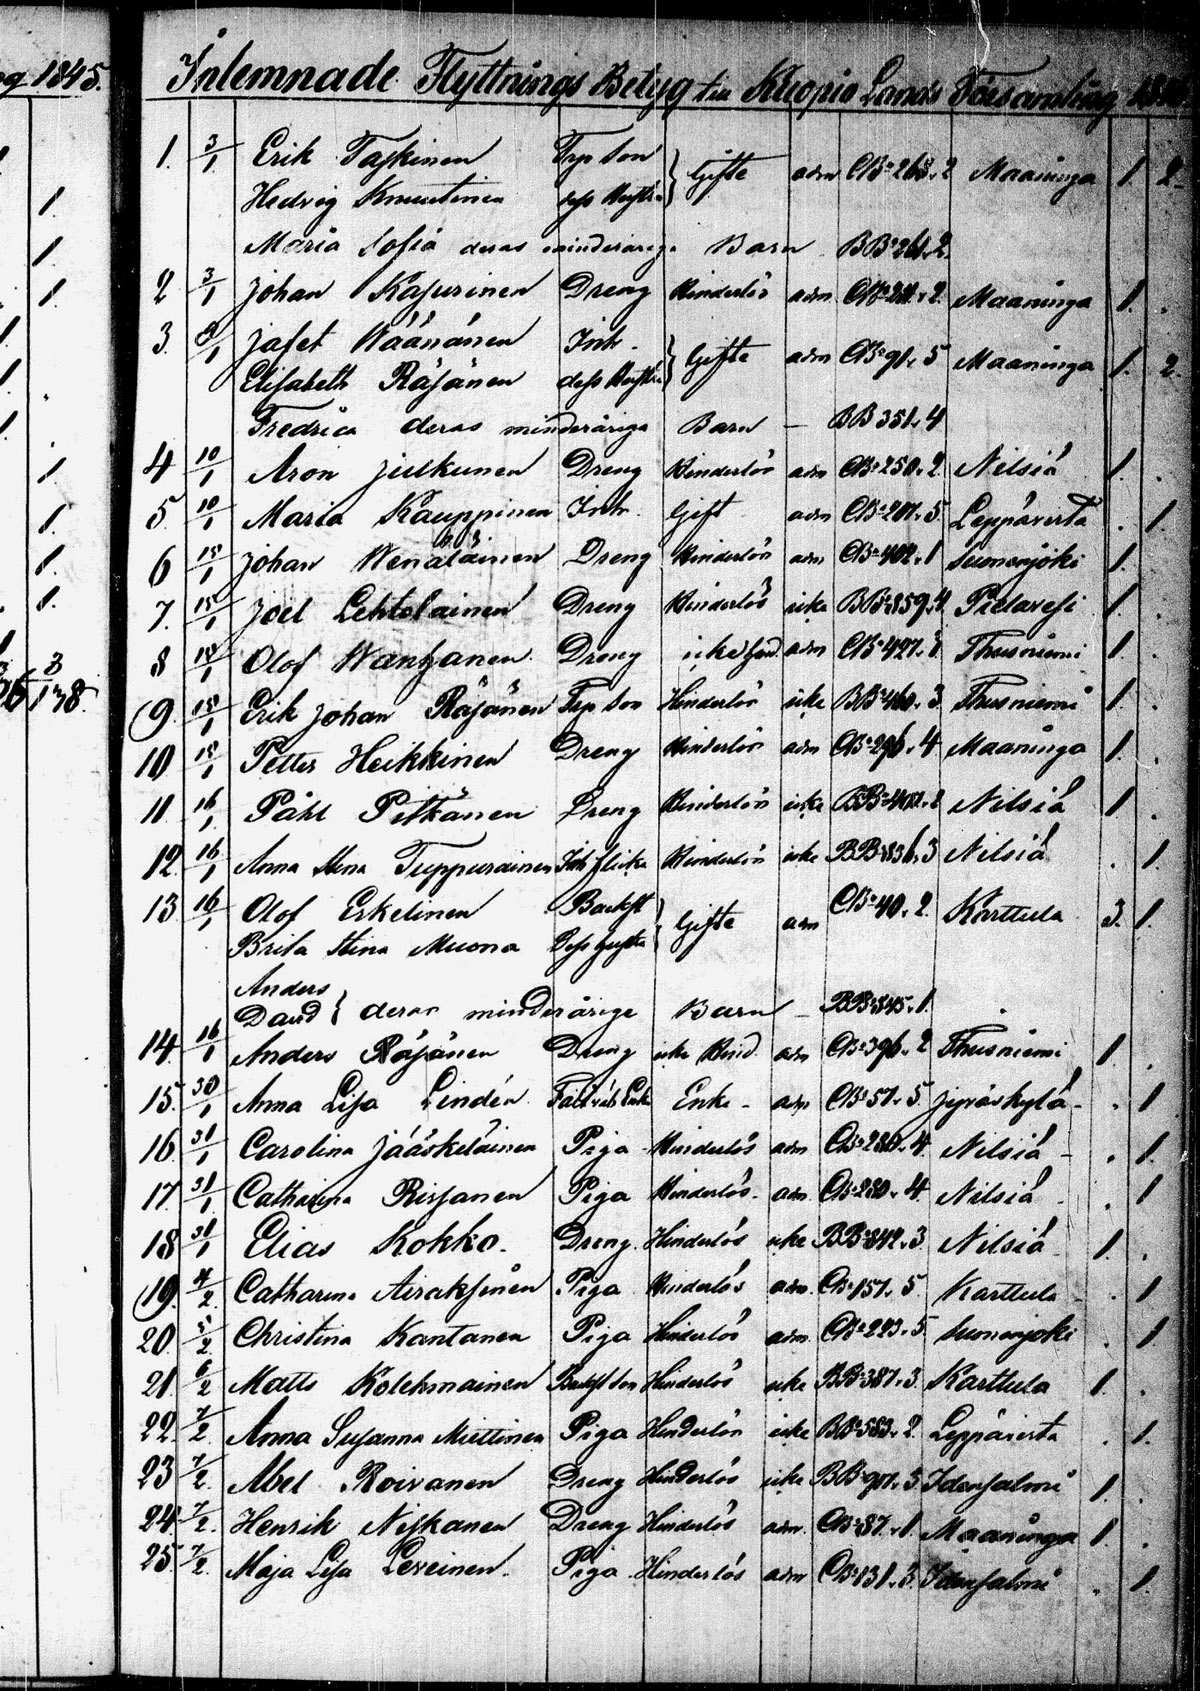 og 1845.
Inlemnade Flyttnings Betyg till Kuopio Lands Församling
1. 3/1 Erik Taskinen Torp Son Gifte adm CB 263. 2 Maaninga 1. 2.
Hedvig Knuutinen dess Hustru
Maria Sofia deras minderåriga Barn BB 261. 2.
2 3/1 Johan Kasurinen Dreng Hinderlös adm CB 2. Maaninga 1. .
3. /1 Jafet Wäänänen Inh. Gifte adm CB 91. 5 Maaninga 1. 2.
Elisabeth Räsänen dess Hustru
Fredrica deras minderåriga Barn – BB 351. 4
4 10/1 Aron Julkunen Dreng Hinderlös adm CB 250. 2. Nilsiä 1. .
5. 10/1 Maria Kauppinen Inh. Gift adm CB 207. 5. Leppävirta . 1.
6 15/1 Johan Wenäläinen Dreng Hinderlös adm CB 402. 1 Suonenjoki 1. .
7. 15/1 Joel Lehtolainen Dreng Hinderlös icke BB 859. 4. Pielavesi 1.
8 15/1 Olof Wantzanen Dreng icke hind. adm CB 427. Thusniemi 1. .
9. 15/1 Erik Johan Räsänen Torp Son Hinderlös icke BB 460. 3. Thusniemi 1. .
10 15/1 Petter Heikkinen Dreng Hinderlös adm CB 296. 4 Maaninga 1. .
11 16/1 Påhl Pitkänen Dreng Hinderlös icke BB 400. Nilsiä 1 .
12. 16/1 Anna Stina Tuppurainen Inh flicka Hinderlös icke BB 836. 3 Nilsiä . 1.
13 16/1 Olof Erkelinen Backst Gifte adm CB 40. 2. Karttula 3. 1.
Brita Stina Muona Dess hustru
Anders
David deras minderårige Barn – BB 845. 1.
14. 16/1 Anders Räsänen Dreng icke Hind. adm CB 396. 2 Thusniemi 1 .
15. 30/1 Anna Lisa Lindén Enka Enka – adm CB 57. 5. Jyväskylä – . 1
16. 31/1 Carolina Jääskeläinen Piga Hinderlös adm CB 280. 4. Nilsiä – . 1.
17. 31/1 Catharina Rissanen Piga Hinderlös adm. CB 280. 4. Nilsiä . 1
18 31/1 Elias Kokko. Dreng. Hinderlös icke BB 842. 3 Nilsiä 1. .
19. 4/2 Catharina Airaksinen Piga Hinderlös adm. CB 157. 5. Karttula – . 1
20 5/2 Christina Kantanen Piga Hinderlös adm. CB 223. 5. Suonenjoki . 1
21. 6/2 Matts Kolehmainen Backst Son Hinderlös icke BB 387. 3. Karttula 1. .
22. 7/2. Anna Susanna Miettinen Piga Hinderlös icke BB 583. 2. Leppävirta . 1.
23 7/2. Abel Roivanen Dreng Hinderlös icke BB 3. Idensalmi 1. .
24 7/2. Henrik Niskanen Dreng Hinderlös adm. CB 87. 1. Maaninga 1. .
25. 7/2. Maja Lisa Leveinen. Piga Hinderlös adm CB 131. 3. Idensalmi . 1.